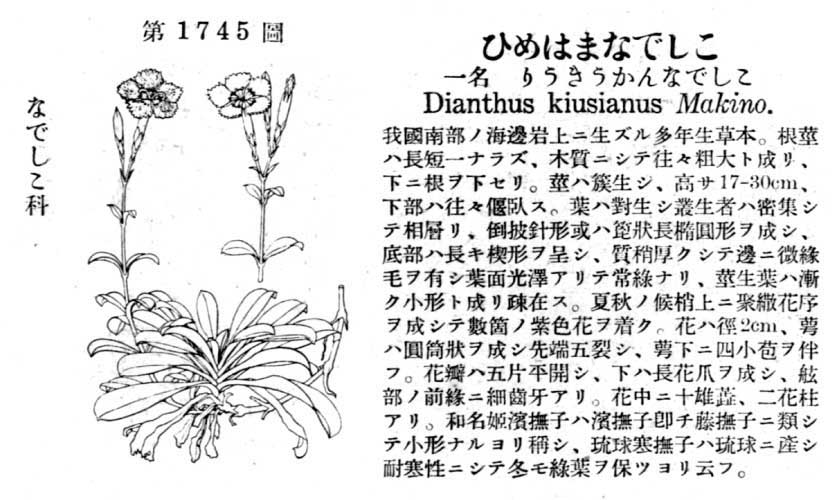 第1745圖
なでしこ科
ひめはまなでしこ
一名 りうきうかんなでしこ
Dianthus kiusianus Makino.
我國南部ノ海邊岩上ニ生ズル多年生草本。根莖
ハ長短一ナラズ、木質ニシテ往々粗大ト成リ、
下ニ根ヲ下セリ。莖ハ簇生シ、高サ17-30cm、
下部ハ往々偃臥ス。葉ハ對生シ叢生者ハ密集シ
テ相層リ、倒披針形或ハ箆狀長橢圓形ヲ成シ、
底部ハ長キ楔形ヲ呈シ、質稍厚クシテ邊ニ微緣
毛ヲ有シ葉面光澤アリテ常綠ナリ、莖生葉ハ漸
ク小形ト成リ疎在ス。夏秋ノ候梢上ニ聚繖花序
ヲ成シテ數箇ノ紫色花ヲ着ク。花ハ徑2cm、萼
ハ圓筒狀ヲ成シ先端五裂シ、萼下ニ四小苞ヲ伴
フ。花瓣ハ五片平開シ、下ハ長花爪ヲ成シ、舷
部ノ前緣ニ細齒牙アリ。花中ニ十雄蕋、二花柱
アリ。和名姬濱撫子ハ濱撫子卽チ藤撫子ニ類シ
テ小形ナルヨリ稱シ、琉球寒撫子ハ琉球ニ產シ
耐寒性ニシテ冬モ綠葉ヲ保ツヨリ云フ。